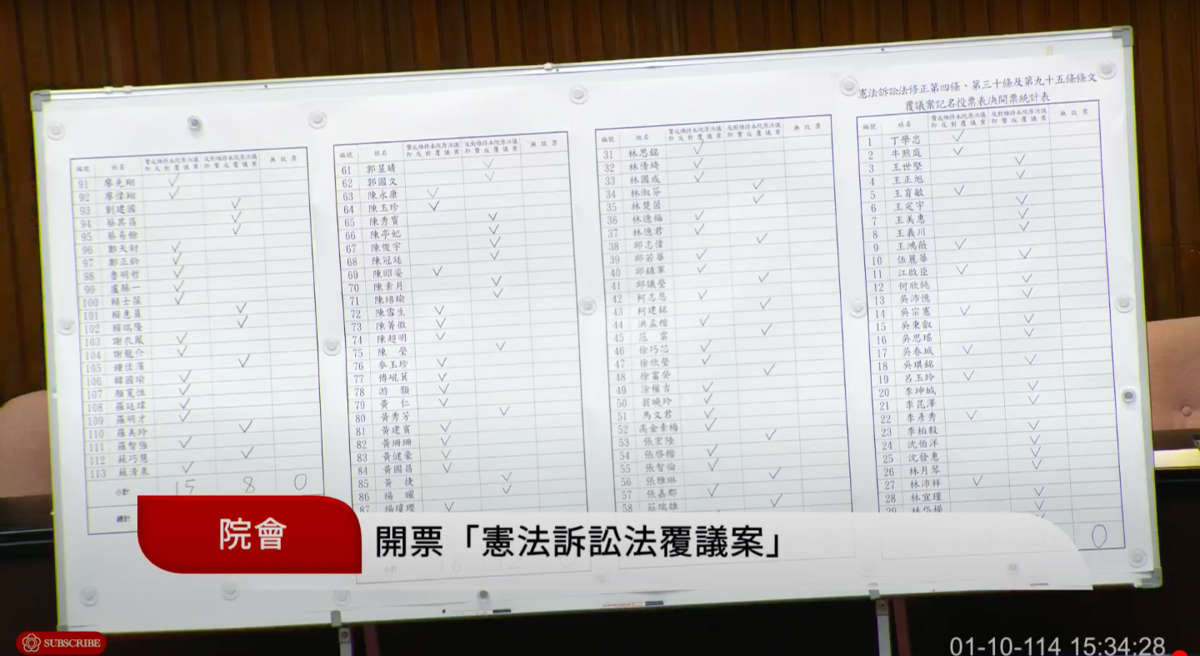 憲法訴訟法修正第四條、第三十條及第九十五條條文
覆議案記名投票表決開票統計表
編號 姓名 贊成維持本院原決議即反對覆議案 反對維持本院原決議即贊成覆議案 無效票
1 丁學忠 ✓
2 牛煦庭 ✓
3 王世堅 ✓
4 王正旭 ✓
5 王育敏 ✓
6 王定宇 ✓
7 王美惠 ✓
8 王義川 ✓
9 王鴻薇 ✓
10 伍麗華 ✓
11 江啟臣 ✓
12 何欣純 ✓
13 吳沛憶 ✓
14 吳宗憲 ✓
15 吳秉叡 ✓
16 吳思瑤 ✓
17 吳春城 ✓
18 吳琪銘 ✓
19 呂玉玲 ✓
20 李坤城 ✓
21 李昆澤 ✓
22 李彥秀 ✓
23 李柏毅 ✓
24 沈伯洋 ✓
25 沈發惠 ✓
26 林月琴 ✓
27 林沛祥 ✓
28 林宜瑾 ✓
29 林岱樺 ✓
0
編號 姓名 贊成維持本院原決議即反對覆議案 反對維持本院原決議即贊成覆議案 無效票
31 林思銘 ✓
32 林倩綺 ✓
33 林國成 ✓
34 林淑芬 ✓
35 林楚茵 ✓
36 林德福 ✓
37 林憶君 ✓
38 邱志偉 ✓
39 邱若華 ✓
40 邱鎮軍 ✓
41 邱議瑩 ✓
42 柯志恩 ✓
43 柯建銘 ✓
44 洪孟楷 ✓
45 范雲 ✓
46 徐巧芯 ✓
47 徐欣瑩 ✓
48 徐富癸 ✓
49 涂權吉 ✓
50 翁曉玲 ✓
51 馬文君 ✓
52 高金素梅 ✓
53 張宏陸 ✓
54 張啓楷 ✓
55 張智倫 ✓
56 張雅琳 ✓
57 張嘉郡 ✓
58 莊瑞雄 ✓
編號 姓名 贊成維持本院原決議即反對覆議案 反對維持本院原決議即贊成覆議案 無效票
61 郭昱晴 ✓
62 郭國文 ✓
63 陳永康 ✓
64 陳玉珍 ✓
65 陳秀寳 ✓
66 陳亭妃 ✓
67 陳俊宇 ✓
68 陳冠廷 ✓
69 陳昭姿 ✓
70 陳素月 ✓
71 陳培瑜 ✓
72 陳雪生 ✓
73 陳菁徽 ✓
74 陳超明 ✓
75 陳瑩 ✓
76 麥玉珍 ✓
77 傅崐萁 ✓
78 游顥 ✓
79 黃仁 ✓
80 黃秀芳 ✓
81 黃建賓 ✓
82 黃珊珊 ✓
83 黃健豪 ✓
84 黃國昌 ✓
85 黃捷 ✓
86 楊曜 ✓
87 楊瓊瓔 ✓
編號 姓名 贊成維持本院原決議即反對覆議案 反對維持本院原決議即贊成覆議案 無效票
91 廖先翔 ✓
92 廖偉翔 ✓
93 劉建國 ✓
94 蔡其昌 ✓
95 蔡易餘 ✓
96 鄭天財 ✓
97 鄭正鈐 ✓
98 魯明哲 ✓
99 盧縣一 ✓
100 賴士葆 ✓
101 賴惠員 ✓
102 賴瑞隆 ✓
103 謝衣鳯 ✓
104 謝龍介 ✓
105 鍾佳濱 ✓
106 韓國瑜 ✓
107 顏寬恒 ✓
108 羅廷瑋 ✓
109 羅明才 ✓
110 羅美玲 ✓
111 羅智強 ✓
112 蘇巧慧 ✓
113 蘇清泉 ✓
小計 15 8 0
總計
院會 開票「憲法訴訟法覆議案」
SUBSCRIBE
01-10-114 15:34:28